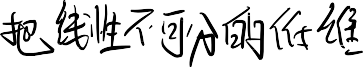 把线性不可分的低维